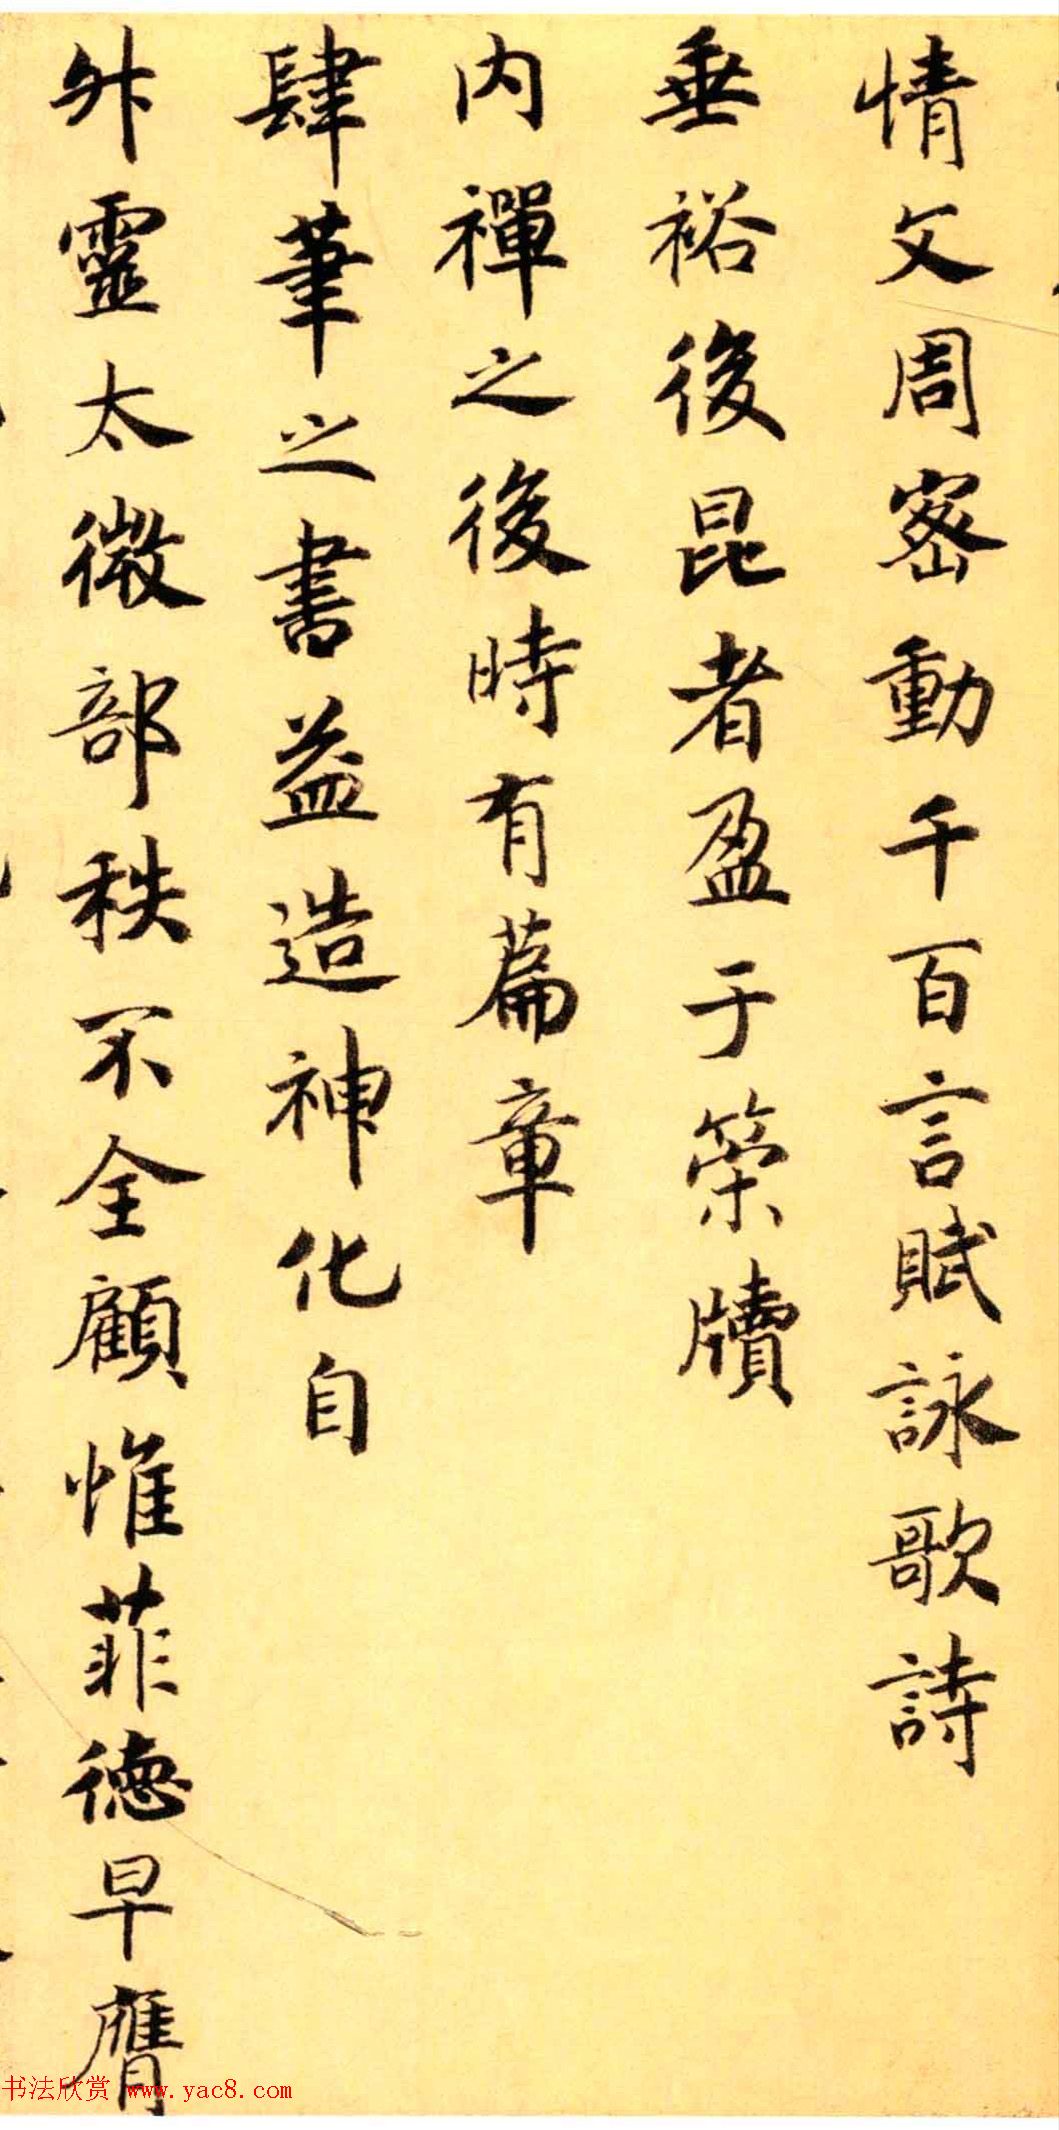 情文周密動千百言賦詠歌詩
垂裕後昆者盈于篇牘
内禪之後時有篇章
肆筆之書益造神化自
升靈太微部秩不全顧惟菲德早膺
书法欣赏 www.yac8.com